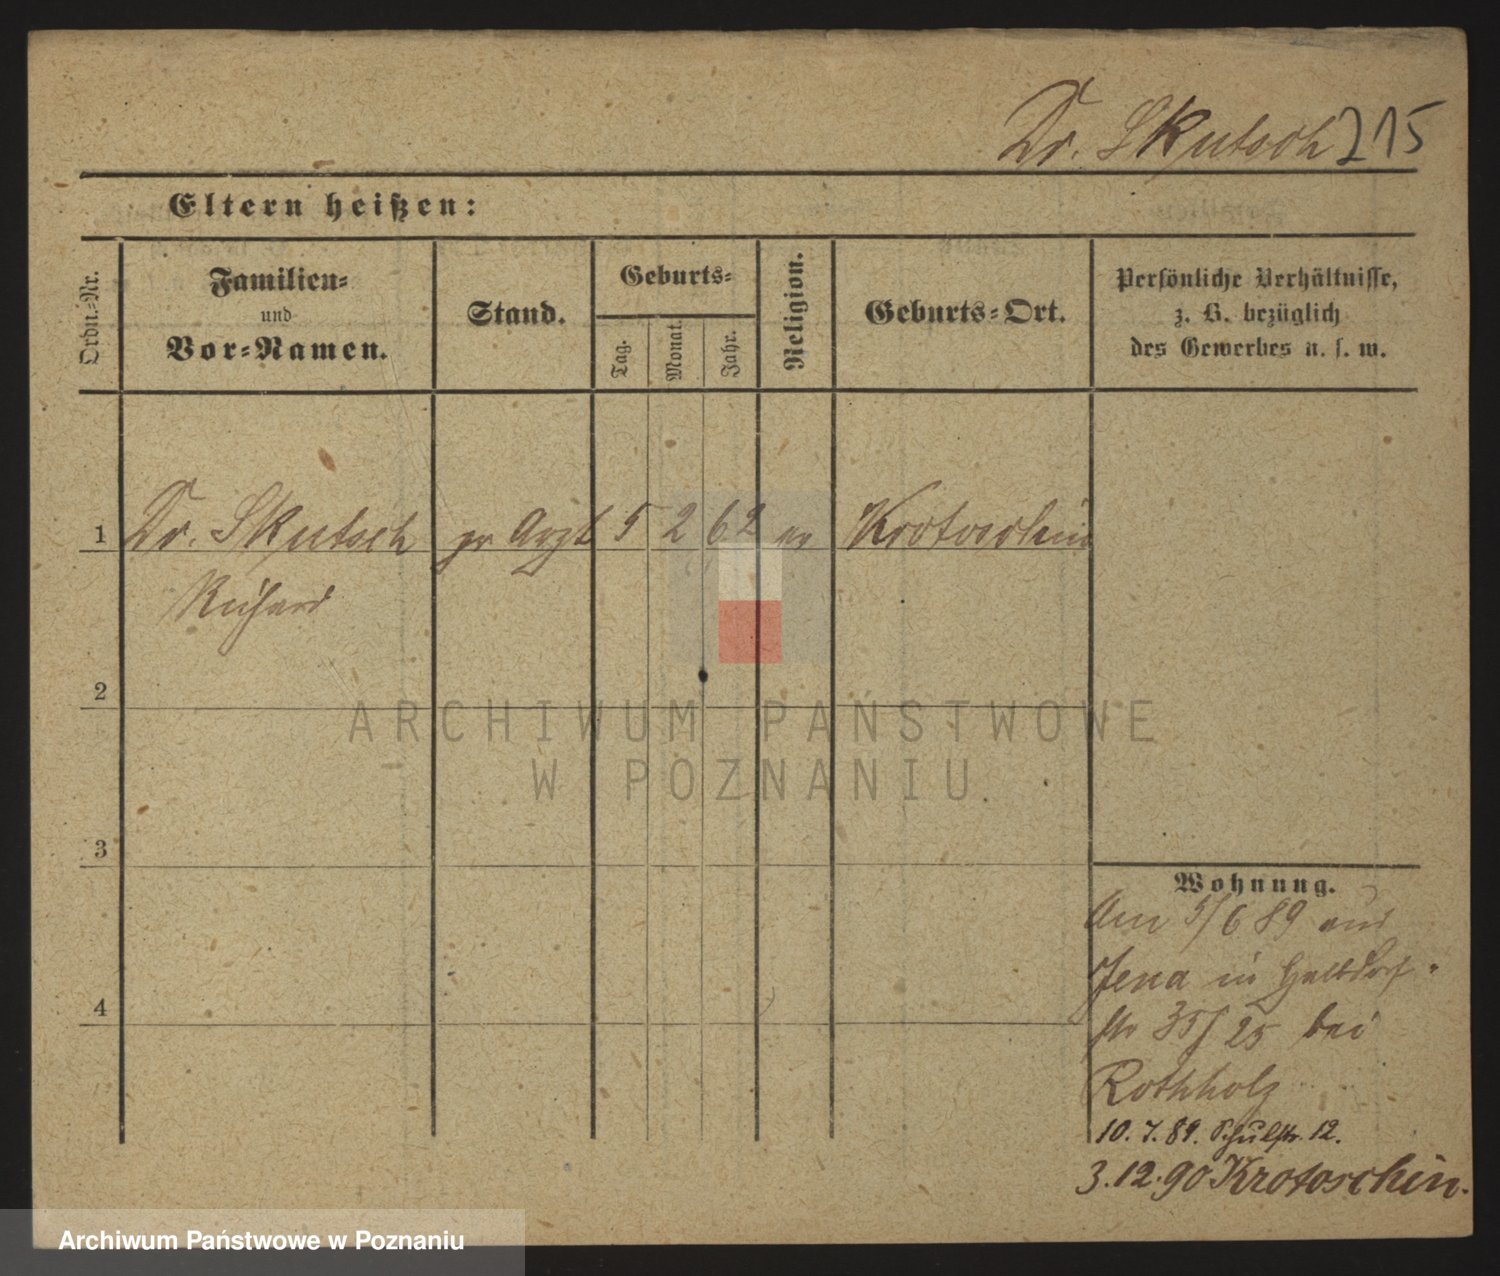 Dr. Skutsch 215
Eltern heißen:
Ordn.-Nr.
Familien-
und
Vor-Namen.
Stand.
Geburts-
Tag.
Monat.
Jahr.
Religion.
Geburts-Ort.
Persönliche Verhältnisse,
z. B. bezüglich
des Gewerbes u. s. w.
1 Dr. Skutsch pr Arzt 5 2 62 Krotoschin
Richard
2
3
4
ARCHIWUM PAŃSTWOWE
W POZNANIU
Wohnung.
Am 5/6 89 aus
Jena in Halbdorf-
str 35/25 bei
Rothholz
10. 7. 89. Schulstr. 12.
3.12.90 Krotoschin.
Archiwum Państwowe w Poznaniu